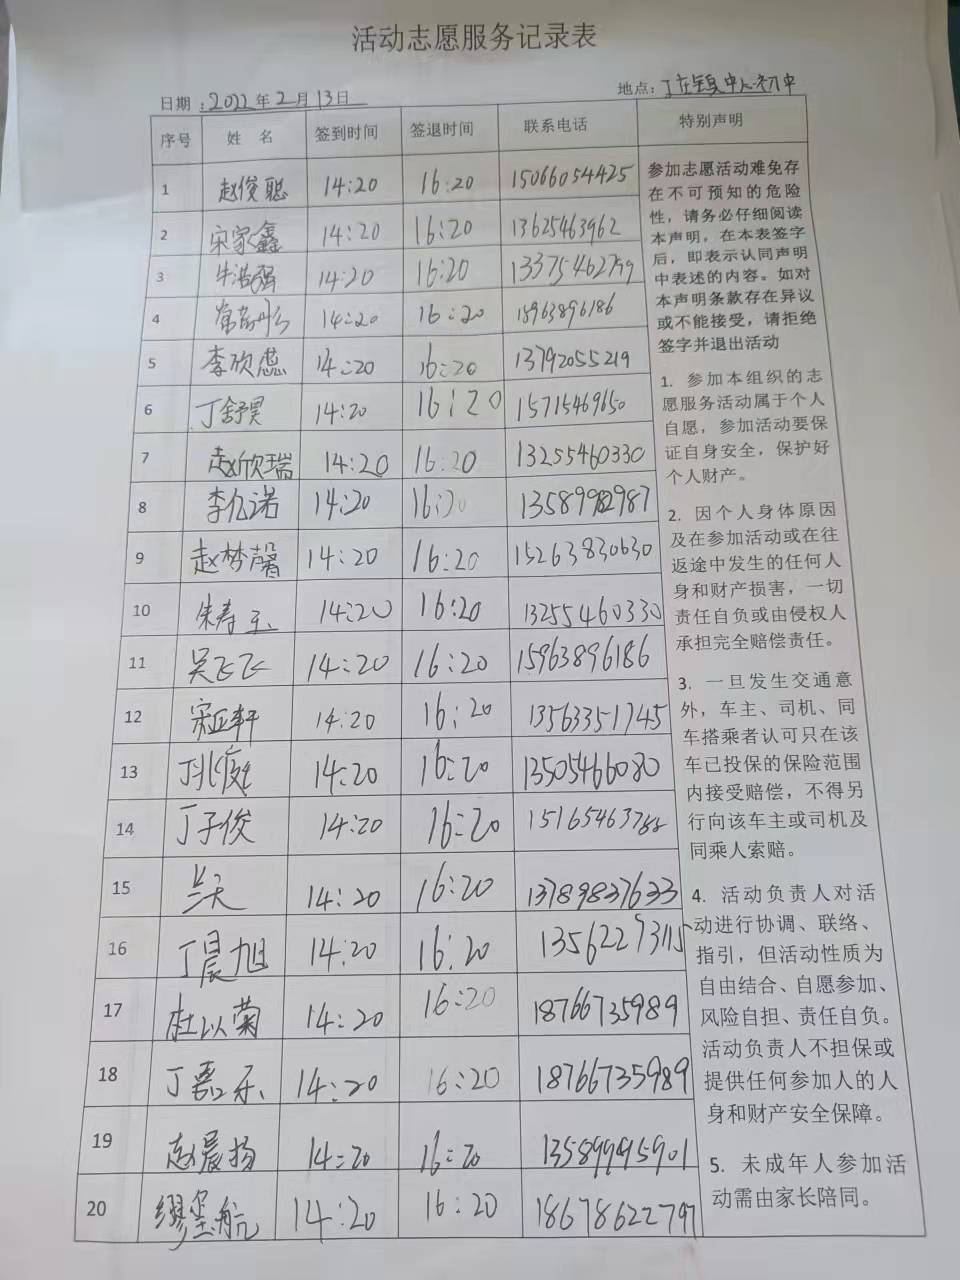 活动志愿服务记录表
日期：2022年2月13日 地点：丁庄镇中心初中
序号 姓 名 签到时间 签退时间 联系电话 特别声明
1 赵俊聪 14:20 16:20 15066054425
2 宋家鑫 14:20 16:20 13625463962
3 牛浩强 14:20 16:20 13375462799
4 14:20 16:20 15963896186
5 李欣蕊 14:20 16:20 13792055219
6 丁舒昊 14:20 16:20 15715469150
7 赵欣瑞 14:20 16:20 13255460330
8 李亿诺 14:20 16:20 13589982987
9 赵梦馨 14:20 16:20 15263830630
10 朱寿玉 14:20 16:20 13255460330
11 吴飞飞 14:20 16:20 15963896186
12 宋正轩 14:20 16:20 13563351745
13 14:20 16:20 13505466080
14 丁子俊 14:20 16:20
15 兰天 14:20 16:20 13789837633
16 丁晨旭 14:20 16:20 13562273115
17 杜以菊 14:20 16:20 18766735989
18 丁嘉乐 14:20 16:20 18766735989
19 赵晨扬 14:20 16:20 13589995901
20 缪玺航 14:20 16:20 18678622797
参加志愿活动难免存
在不可预知的危险
性，请务必仔细阅读
本声明，在本表签字
后，即表示认同声明
中表述的内容。如对
本声明条款存在异议
或不能接受，请拒绝
签字并退出活动
1. 参加本组织的志
愿服务活动属于个人
自愿，参加活动要保
证自身安全，保护好
个人财产。
2. 因个人身体原因
及在参加活动或在往
返途中发生的任何人
身和财产损害，一切
责任自负或由侵权人
承担完全赔偿责任。
3. 一旦发生交通意
外，车主、司机、同
车搭乘者认可只在该
车已投保的保险范围
内接受赔偿，不得另
行向该车主或司机及
同乘人索赔。
4. 活动负责人对活
动进行协调、联络、
指引，但活动性质为
自由结合、自愿参加、
风险自担、责任自负。
活动负责人不担保或
提供任何参加人的人
身和财产安全保障。
5. 未成年人参加活
动需由家长陪同。